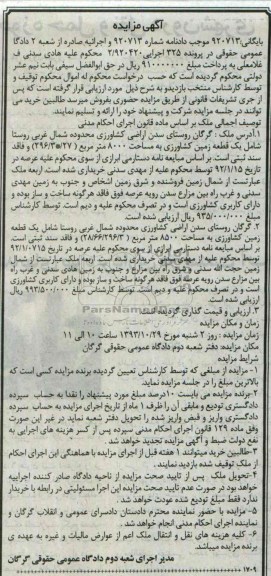 آگهی مزایده
بایگانی:۹۲۰۷۱۳ بموجب دادنامه شماره ۹۲۰۷۱۳ و اجرائیه صادره از شعبه ۲ دادگاه
عمومی حقوقی در پرونده ۳۲۵ اجرایی ۲/۹۲۰۴۲۰ محکوم علیه هادی سدنی ف
غلامعلی به پرداخت مبلغ ۹۱۰۰۰۰۰۰۰ ریال در حق ابوالفضل سیفی بابت نیم عشر
دولتی محکوم گردیده است که حسب درخواست محکوم له اموال محکوم توقیف و
توسط کارشناس منتخب بازدید و به شرح ذیل مورد ارزیابی قرار گرفته است که پس
از جری تشریفات قانونی از طریق مزایده حضوری بفروش میرسد طالبین خرید می
توانند در جلسه مزایده شرکت و پیشنهاد خود را ارائه و تسلیم نمایند.
توصیف اجمالی ملک: بر اساس ماده قانون اجرای احکام مدنی
۱.آدرس ملک : گرگان روستای سدن اراضی کشاورزی محدوده شمال غربی روستا
شامل یک قطعه زمین کشاورزی به مساحت ۸۰۰۰ متر مربع (۲۷*۲۹۶/۳) و فاقد
سند ثبتی است. بر اساس مبایعه نامه دستارمی ابرازی از سوی محکوم علیه عرصه در
تاریخ ۹۲/۱/۱۵ توسط محکوم علیه از مهدی سدنی خریداری شده است. اربعه ملک
عبارتست از شمال زمین فروشنده و شرق زمین اشخاص و جنوب به زمین مهدی
سدنی و غرب راه بین مزارع سدن رویه عرصه فوق فاقد هر گونه ساخت و ساز بوده و
دارای کاربری کشاورزی است و در تصرف محکوم علیه و دیم است. توسط کارشناس
مبلغ ۹۳۵/۰۰۰/۰۰۰ ریال ارزیابی شده است.
۲. گرگان روستای سدن اراضی کشاورزی محدوده شمال غربی روستا شامل یک قطعه
زمین کشاورزی به مساحت ۸۵۰۰ متر مربع (۲۸/۶۶*۲۹۶/۳) و فاقد سند ثبتی است.
بر اساس مبایعه نامه دستارمی ابرازی از سوی محکوم علیه عرصه در تاریخ ۹۲/۱۰/۷۱۵
توسط محکوم علیه از مهدی سدنی خریداری شده است. اربعه ملک عبارتست از شمال
زمین حجت الله سدنی و شرق راه بین مزارع و جنوب به زمین هادی سدنی و غرب راه
بین مزارع سدن رویه عرصه فوق فاقد هر گونه ساخت و ساز بوده و دارای کاربری کشاورزی
است و در تصرف محکوم علیه و دیم است. توسط کارشناس مبلغ ۹۹۳/۵۰۰/۰۰۰ ریال
ارزیابی شده است.
۳. ارزیابی و قیمت گذاری گردیده است
زمان و مکان مزایده
زمان مزایده : روز ۲ شنبه مورخ ۱۳۹۳/۱۰/۲۹ ساعت ۱۰ الی ۱۱
مکان مزایده: دفتر شعبه دوم دادگاه عمومی حقوقی گرگان
شرایط مزایده
۱- مزایده از مبلغی که توسط کارشناس تعیین گردیده برنده مزایده کسی است که
بالاترین مبلغ را در جلسه مزایده نماید.
۲.برنده مزایده می بایست ۱۰درصد مبلغ مورد پیشنهاد را نقدا به حساب سپرده
دادگستری تودیع و مابقی آن را ظرف ۱ ماه از تاریخ اجرای مزایده به حساب سپرده
دادگستری واریز و قبض واریز شده را تحویل دفتر شعبه نماید در غیر این صورت
وفق ماده ۱۲۹ قانون اجرای احکام مدنی سپرده پس از کسر هزینه های اجرایی به
نفع دولت ضبط و آگهی مزایده تجدید خواهد شد .
۳-طالبین خرید میتوانند ۱ هفته قبل از اجرای مزایده با هماهنگی این اجرای احکام
از ملک توقیف شده بازدید نمایند .
۴-تحویل ملک پس از تایید صحت مزایده از ناحیه دادگاه صادر کننده اجراییه
خواهد بود در صورت عدم تایید صحت مزایده این اجرا مسئولیتی در رابطه با خریدار
ندارد فقط مبلغ تودیع شده عودت خواهد شد .
۵-مزایده با حضور نماینده محترم دادستان دادسرای عمومی و انقلاب گرگان و
نماینده اجرای احکام مدنی انجام خواهد شد .
۶- کلیه هزینه های نقل و انتقال ملک اعم از عوارض مالیات و غیره به عهده ی
برنده مزایده میباشد.
مدیر اجرای شعبه دوم دادگاه عمومی حقوقی گرگان
۱۷۰۹